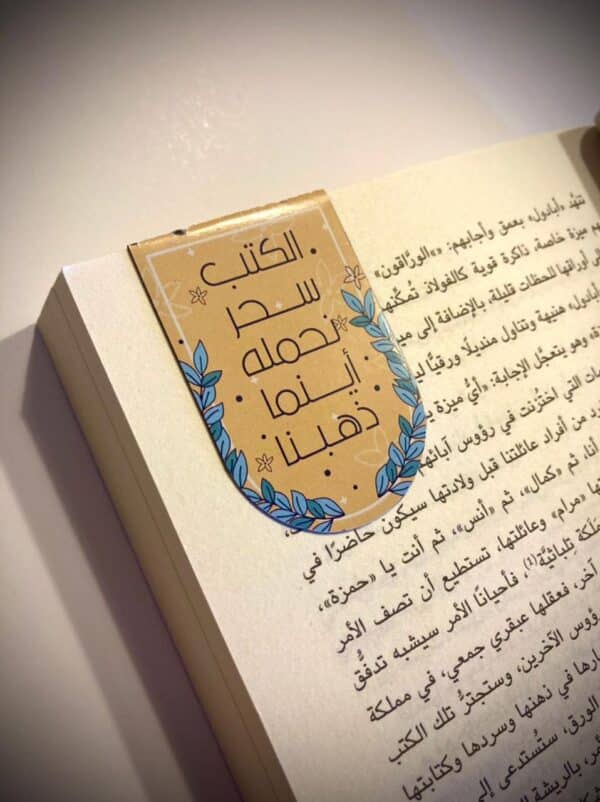 الكتب
سحر
نحمله
أينما
ذهبنا
تنهَّد «أبادول» بعمق وأجابهم: «»الورَّاقون»
ميزة خاصة، ذاكرة قوية كالفولاذ تُمكِّنهم
إلى أوراقها للحظات قليلة، بالإضافة إلى
أبادول» هنيهة وتناول منديلًا ورقيًّا
وهو يتعجَّل الإجابة: «أيُّ ميزة
التي اختُزنت في رؤوس آبائهم
من أفراد عائلتنا قبل ولادتها سيكون حاضرًا في
أنا، ثم «كمال»، ثم «أنس»، ثم أنت يا «حمزة»،
«مرام» وعائلتها، تستطيع أن تصف الأمر
مملكة تِلِباثيَّة(٤)، فأحيانًا الأمر سيشبه تدفُّق
آخر، فعقلها عبقري جمعي، في مملكة
رؤوس الآخرين، وستجترُّ تلك الكتب
في ذهنها وسردها وكتابتها
الورق، ستُستدعى إلى
بالريشة